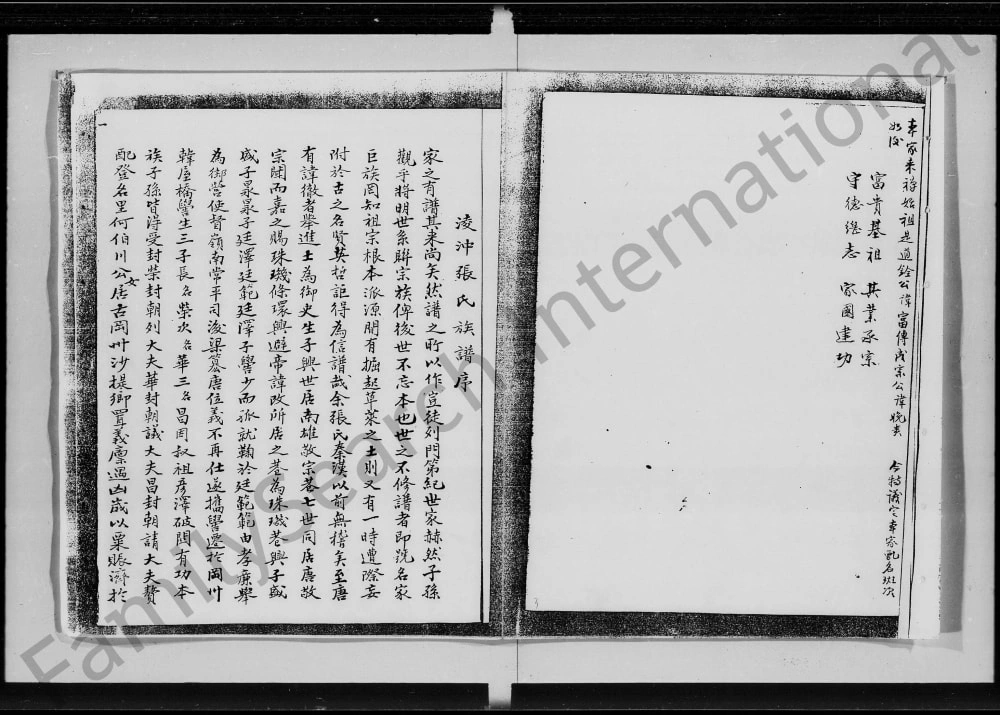 本家来祿始祖是道銓公諱富傳成宗公諱晚貴 今特議定本家配名班次
如後
富貴基祖 其業承宗
守德繼志 家國建功
3
凌沖張氏族譜序
家之有譜其来尚矣然譜之所以作豈徒列門第紀世家赫然子孫
觀乎將明世系聯宗族俾後世不忘本也世之不修譜者即號名家
巨族罔知祖宗根本派源朋有掘起草萊之士則又有一時遭際妄
附於古之名賢英哲詎得為信譜哉余張氏秦漢以前無稽矣至唐
有諱徹者舉進士為御史生子興世居南雄敬宗巷七世同居唐敬
宗聞而嘉之賜珠璣條環興避帝諱改所居之巷為珠璣巷興子盛
盛子杲杲子廷澤廷範廷澤子譽少而孤就鞠於廷範範由孝廉舉
為御營使督嶺南常平司後梁簒唐位義不再仕遂攜譽遷於岡州
韓屋橋譽生三子長名榮次名華三名昌同叔祖彥澤破閩有功本
族子孫皆淂受封榮封朝列大夫華封朝議大夫昌封朝請大夫贊
配登名里何伯川公女居古岡州沙堤鄉置義廩遇凶歲以粟賑濟於
一
FamilySearch International